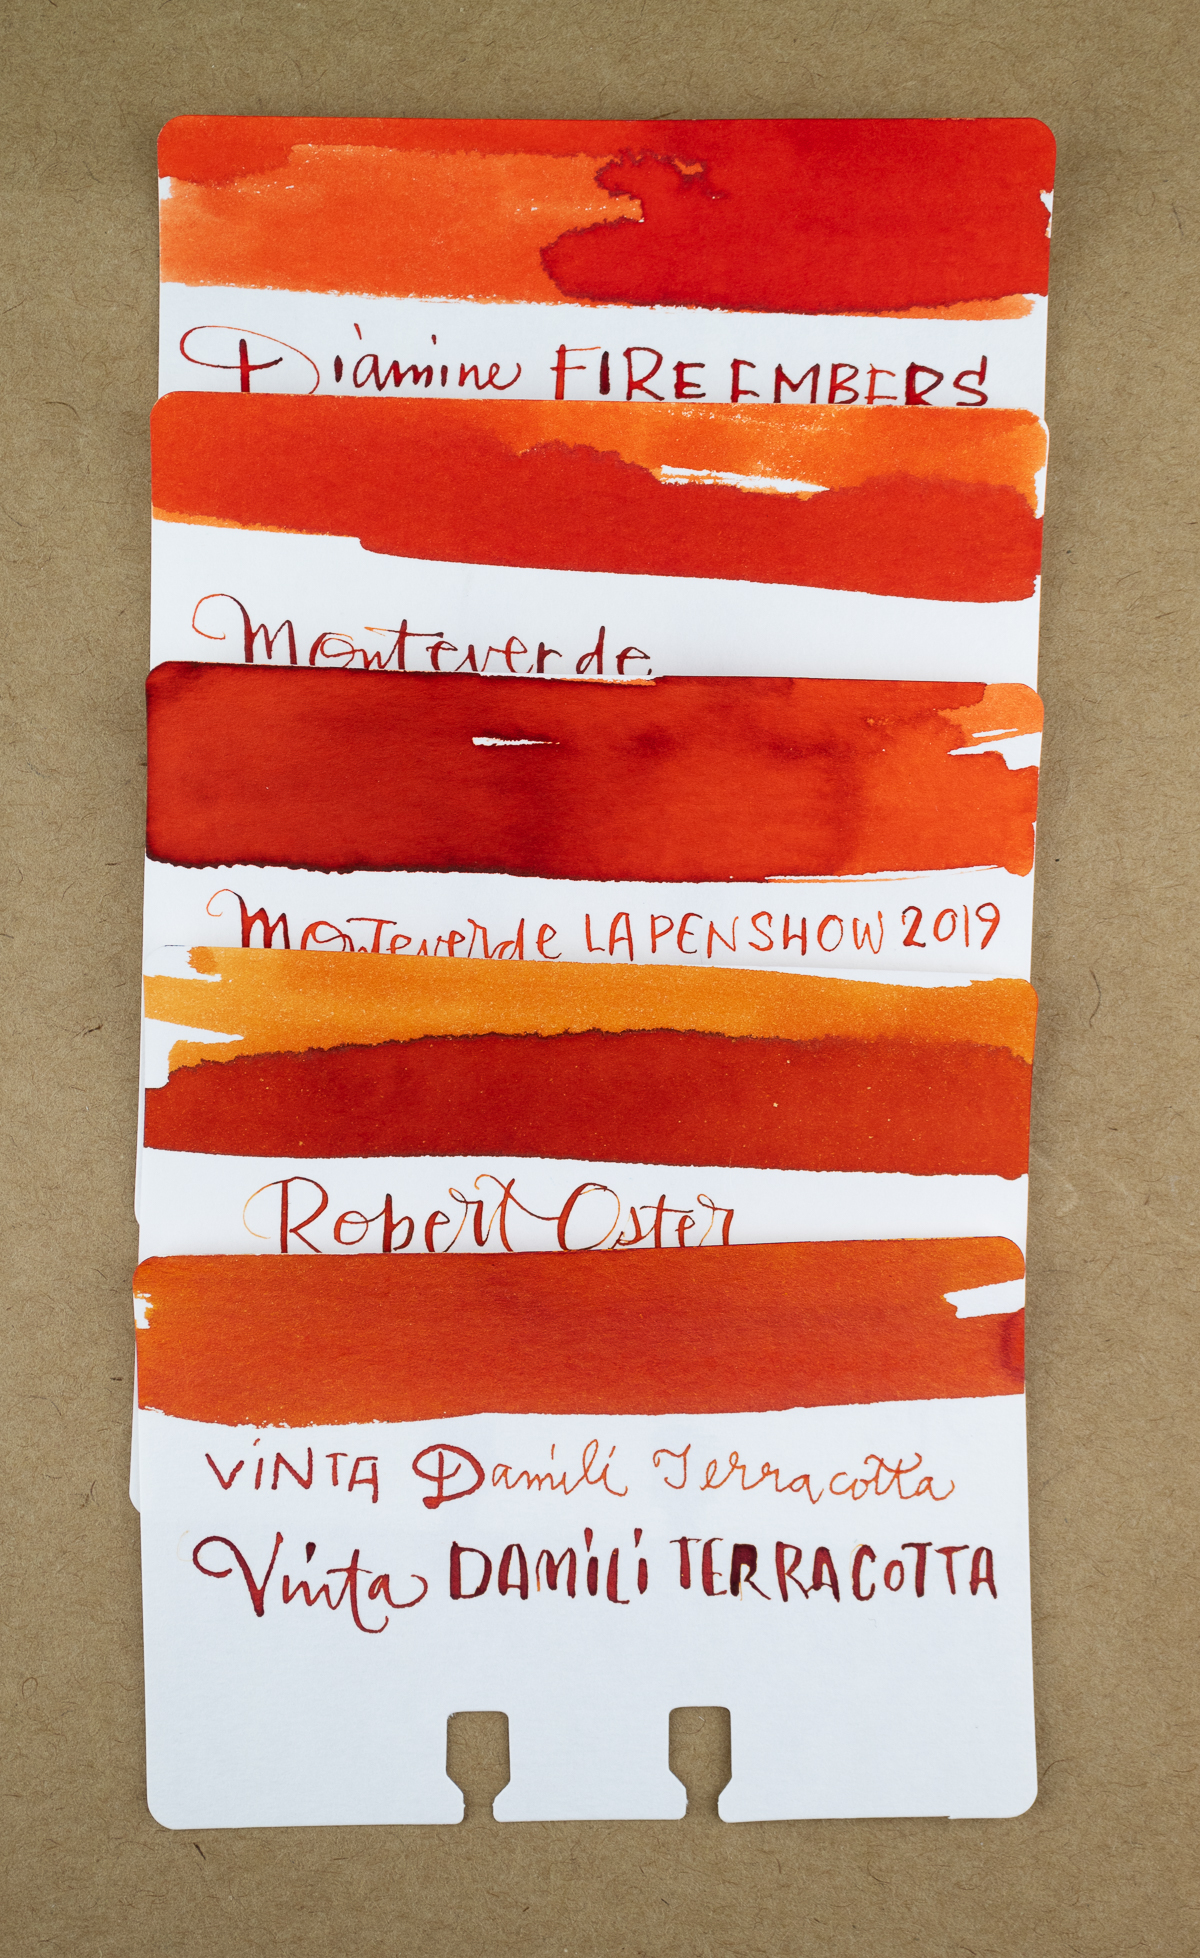 Diamine FIRE EMBERS
Monteverde
Monteverde LA PEN SHOW 2019
Robert Oster
VINTA Damili Terracotta
Vinta DAMILI TERRACOTTA